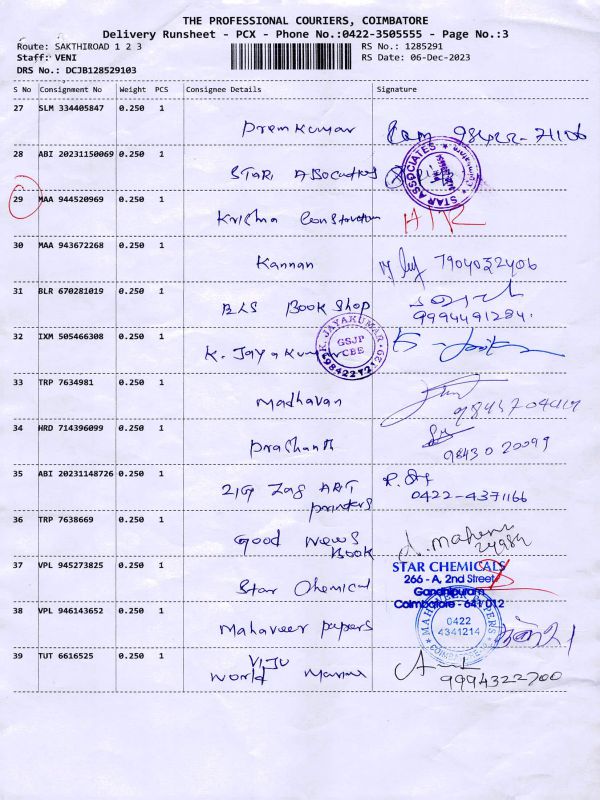 THE PROFESSIONAL COURIERS, COIMBATORE
Delivery Runsheet - PCX - Phone No.:0422-3505555 - Page No.:3
Route: SAKTHIROAD 1 2 3 RS No.: 1285291
Staff: VENI RS Date: 06-Dec-2023
DRS No.: DCJB128529103
S No Consignment No Weight PCS Consignee Details Signature
27 SLM 334405847 0.250 1
Prem Kumar 98422-71106
28 ABI 20231150069 0.250 1
STAR ASSOCIATES
29 MAA 944520969 0.250 1
Krishna
30 MAA 943672268 0.250 1
Kannan 7904032406
31 BLR 670281019 0.250 1
BLS Book Shop
9994491284.
32 IXM 505466308 0.250 1
K. JAYAKUMAR
GSJP
CBE
K. Jayakumar
33 TRP 7634981 0.250 1
Madhavan
34 HRD 714396099 0.250 1
Prashanth 98430 20099
35 ABI 20231148726 0.250 1
Zig Zag ART
printers 0422-4371166
36 TRP 7638669 0.250 1
Good News
Book
37 VPL 945273825 0.250 1
STAR CHEMICALS
266 - A, 2nd Street
Gandhipuram
Coimbatore - 641 012
Star Chemical
38 VPL 946143652 0.250 1
Mahaveer papers
0422
4341214
39 TUT 6616525 0.250 1
VIJU
World
9994322700